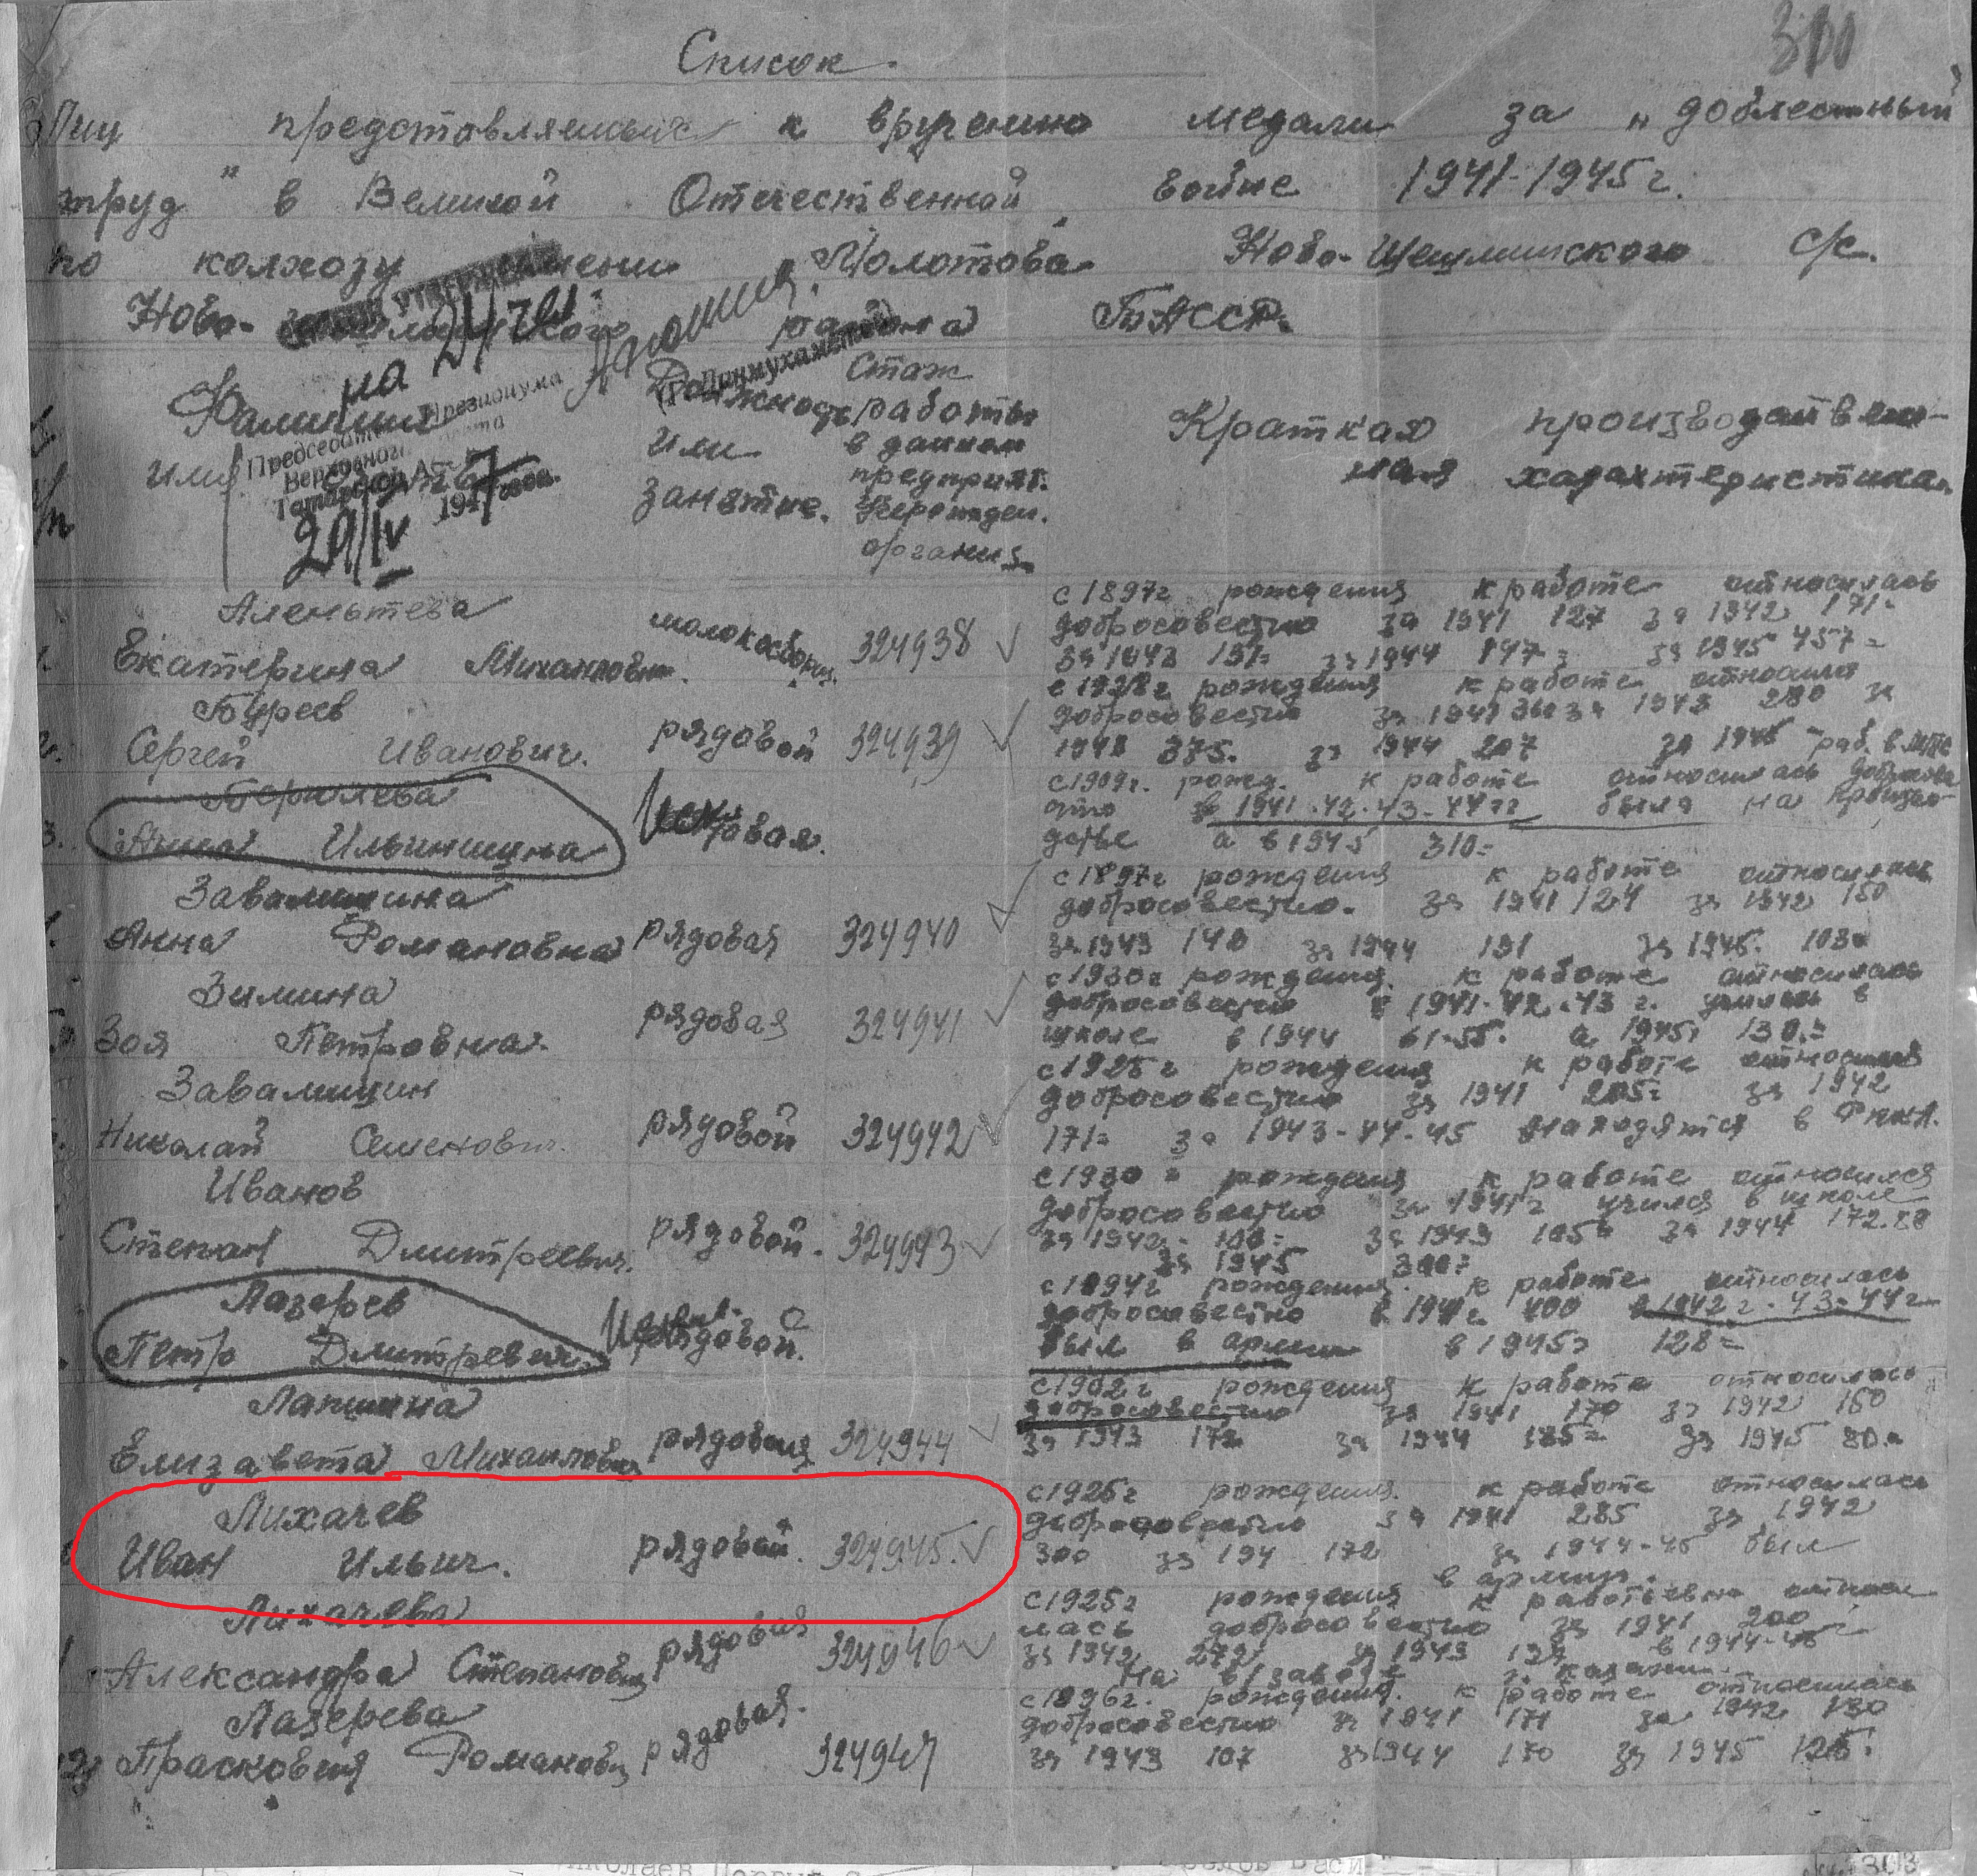 Список.
310
Лиц представляемых к вручению медали за „доблестный
труд" в Великой Отечественной войне 1941-1945 г.
по колхозу имени Молотова Ново-Шешминского с/с.
Ново- района ТАССР.
на 21/
Председатель Президиума
Верховного Совета
Татарской АССР
29/IV 1947 года.
Фамилия
имя
Должность
или
занятие.
Стаж
работы
в данном
предприят.
учрежден.
организ.
Краткая производствен-
ная характеристика.
Аленьтева
Екатерина Михайловн. молокосборщ. 324938 ✓
с 1897г рождения к работе относилась
добросовестно за 1941 127 за 1942 171=
за 1943 131= за 1944 147= за 1945 457=
Буреев
2. Сергей Иванович. рядовой 324939 ✓
с 1928г рождения к работе относился
добросовестно за 1941 за 1943 280 за
1943 375. за 1944 207 за 1945 раб. в МТС
3. Анна Ильинична рядовая.
с 1909г. рожд. к работе относилась добросове
стно в 1941-42-43-44гг была на производ
стве а в 1945 310=
Завалишина
Анна Романовна рядовая 324940 ✓
с 1897г рождения к работе относилась
добросовестно. за 1941 124 за 1942 150
за 1943 140 за 1944 191 за 1945 103=
Зимина
Зоя Петровна. рядовая 324941 ✓
с 1930г рождения. к работе относилась
добросовестно в 1941-42-43 г. училась в
школе в 1944 61-55. а 1945г 130.=
Завалишин
Николай Семенович. рядовой 324942 ✓
с 1925г рождения к работе относился
добросовестно за 1941 205= за 1942
171= за 1943-44-45 находятся в
Иванов
Степан Дмитреевич. рядовой. 324943 ✓
с 1930г рождения к работе относился
добросовестно за 1941г учился в школе
за 1942г. 100= за 1943 105= за 1944 172.88
за 1945 300=
Лазерев
Петр Дмитревич. рядовой.
с 1894г рождения. к работе относилась
добросовестно в 1941г. 400 в 1942г.-43-44г
был в армии в 1945г 128=
Лапшина
Елизавета Михаиловна рядовая 324944 ✓
с 1902г рождения к работе относилась
добросовестно за 1941 170 за 1942 150
за 1943 172 за 1944 185= за 1945 80=
Лихачев
Иван Ильич. рядовой. 324945. ✓
с 1926г рождения. к работе относилась
добросовестно за 1941 285 за 1942
300 за 194 172 за 1944-45 был
в армии.
Лихачева
Александра Степановна рядовая 324946 ✓
с 1925г рождения к работе относи
лась добросовестно за 1941 200
за 1942 272 за 1943 в 1944-45
на в/заводе г. казани.
Лазерева
Прасковия Романовн рядовая. 324947
с 1896г. рождения. к работе относилась
добросовестно за 1941 171 за 1942 130
за 1943 107 за 1944 170 за 1945 125.
313